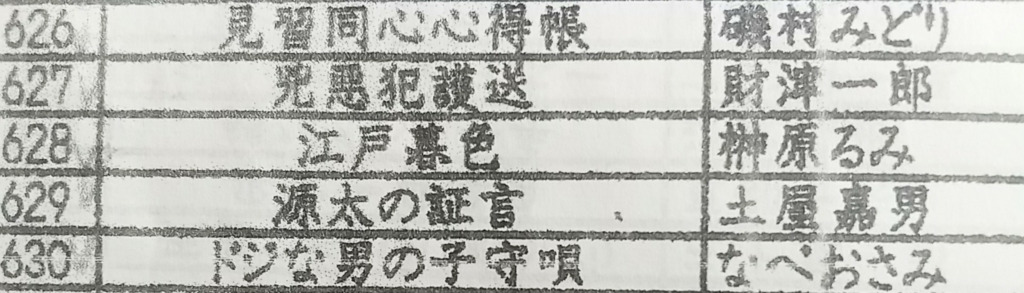 626 見習同心心得帳 磯村みどり
627 兇悪犯護送 財津一郎
628 江戸暮色 榊原るみ
629 源太の証言 土屋嘉男
630 ドジな男の子守唄 なべおさみ